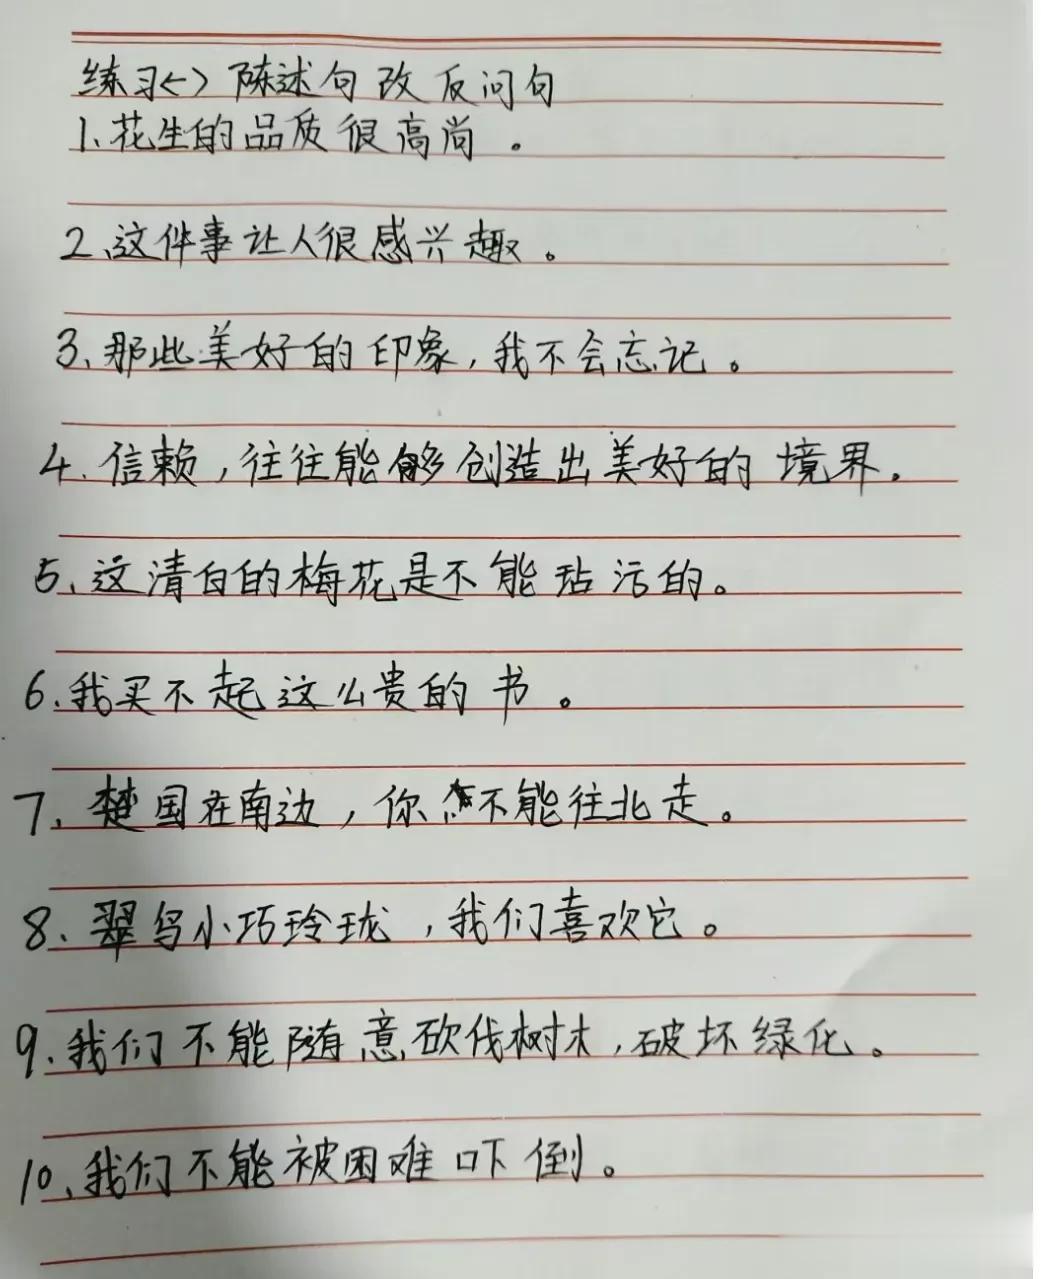 练习<> 陈述句改反问句
1.花生的品质很高尚。
2、这件事让人很感兴趣。
3、那些美好的印象,我不会忘记。
4.信赖,往往能够创造出美好的境界。
5、这清白的梅花是不能玷污的。
6.我买不起这么贵的书。
7、楚国在南边,你不能往北走。
8、翠鸟小巧玲珑,我们喜欢它。
9.我们不能随意砍伐树木,破坏绿化。
10、我们不能被困难吓倒。